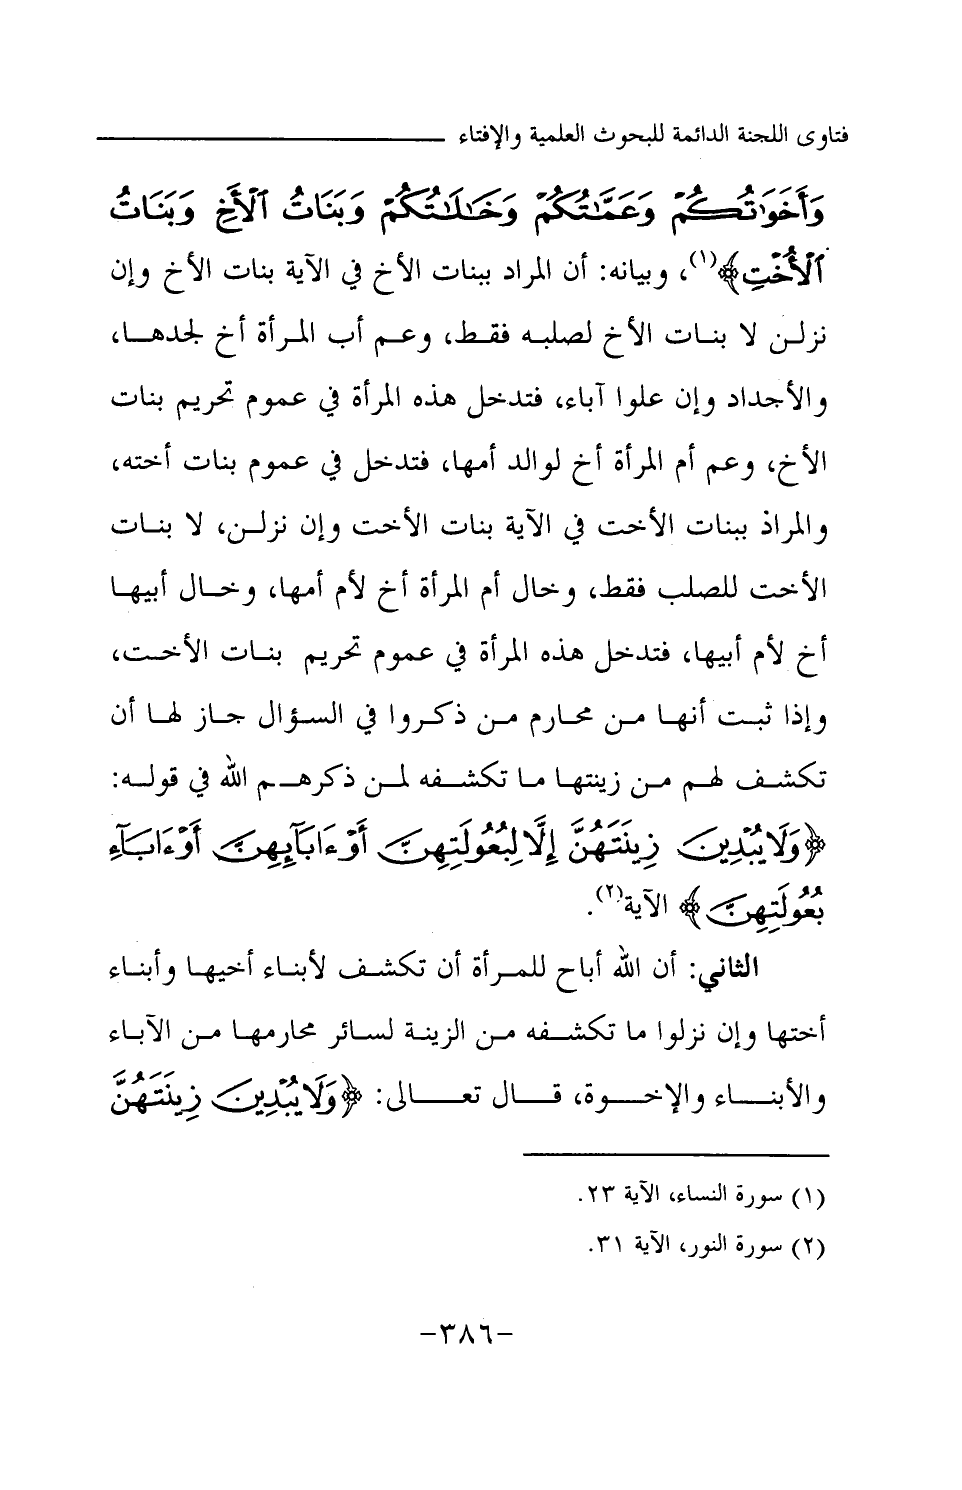 فتاوى اللجنة الدائمة للبحوث العلمية والإفتاء
وَأَخَوَاتُكُمْ وَعَمَّاتُكُمْ وَخَالَاتُكُمْ وَبَنَاتُ الْأَخِ وَبَنَاتُ
الْأُخْتِ﴾(١)، وبيانه: أن المراد ببنات الأخ في الآية بنات الأخ وإن
نزلن لا بنات الأخ لصلبه فقط، وعم أب المرأة أخ لجدها،
والأجداد وإن علوا آباء، فتدخل هذه المرأة في عموم تحريم بنات
الأخ، وعم أم المرأة أخ لوالد أمها، فتدخل في عموم بنات أخته،
والمراذ ببنات الأخت في الآية بنات الأخت وإن نزلن، لا بنات
الأخت للصلب فقط، وخال أم المرأة أخ لأم أمها، وخال أبيها
أخ لأم أبيها، فتدخل هذه المرأة في عموم تحريم بنات الأخت،
وإذا ثبت أنها من محارم من ذكروا في السؤال جاز لها أن
تكشف لهم من زينتها ما تكشفه لمن ذكرهم الله في قوله:
﴿وَلَا يُبْدِينَ زِينَتَهُنَّ إِلَّا لِبُعُولَتِهِنَّ أَوْ ءَابَآئِهِنَّ أَوْ ءَابَآءِ
بُعُولَتِهِنَّ﴾ الآية(٢).
الثاني: أن الله أباح للمرأة أن تكشف لأبناء أخيها وأبناء
أختها وإن نزلوا ما تكشفه من الزينة لسائر محارمها من الآباء
والأبناء والإخوة، قال تعالى: ﴿وَلَا يُبْدِينَ زِينَتَهُنَّ
(١) سورة النساء، الآية ٢٣.
(٢) سورة النور، الآية ٣١.
-٣٨٦-